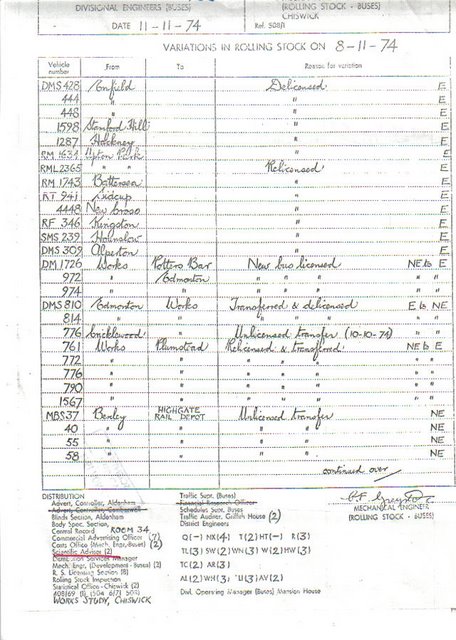 DIVISIONAL ENGINEERS (BUSES) (ROLLING STOCK - BUSES)
CHISWICK
DATE 11-11-74 Ref. 508/1
VARIATIONS IN ROLLING STOCK ON 8-11-74
Vehicle number From To Reason for variation
DMS 428 Enfield Delicensed E
444 " " E
448 " " E
1598 Stamford Hill " E
1287 Hackney " E
RM 1634 Upton Park " E
RML 2365 " " Relicensed E
RM 1743 Battersea " E
RT 941 Sidcup " E
4448 New Cross " E
RF 346 Kingston " E
SMS 239 Hounslow " E
DMS 309 Alperton " E
DM 1726 Works Potters Bar New bus licensed NE to E
972 " Edmonton " " " " "
974 " " " " " " "
DMS 810 Edmonton Works Transferred & delicensed E to NE
814 " " " " " " "
776 Cricklewood " Unlicensed transfer (10-10-74)
761 Works Plumstead Relicensed & transferred NE to E
772 " " " " " " "
776 " " " " " " "
790 " " " " " " "
1567 " " " " " " "
MBS 37 Bexley HIGHGATE RAIL DEPOT Unlicensed transfer NE
40 " " " " NE
55 " " " " NE
58 " " " " NE
continued over
DISTRIBUTION
Advert. Controller, Aldenham
Advert. Controller, Camberwell
Blinds Section, Aldenham
Body Spec. Section,
Central Record ROOM 34
Commercial Advertising Officer (7)
Costs Office (Mech. Engr. Buses) (2)
Scientific Adviser (2)
Services Manager
Mech. Engr. (Development - Buses) (2)
R. S. Licensing Section (8)
Rolling Stock Inspection
Statistical Office - Chiswick (2)
WORKS STUDY, CHISWICK
Traffic Supt. (Buses)
Financial Research Officer
Schedules Supt. Buses
Traffic Auditor, Griffith House (2)
District Engineers
Q (-) NX (4) T (2) HT (-) R (3)
TL (3) SW (2) WN (3) W (2) HW (3)
TC (2) AR (3)
AL (2) WH (3) U (3) AV (2)
Divl. Operating Manager (Buses) Mansion House
MECHANICAL ENGINEER
(ROLLING STOCK - BUSES)